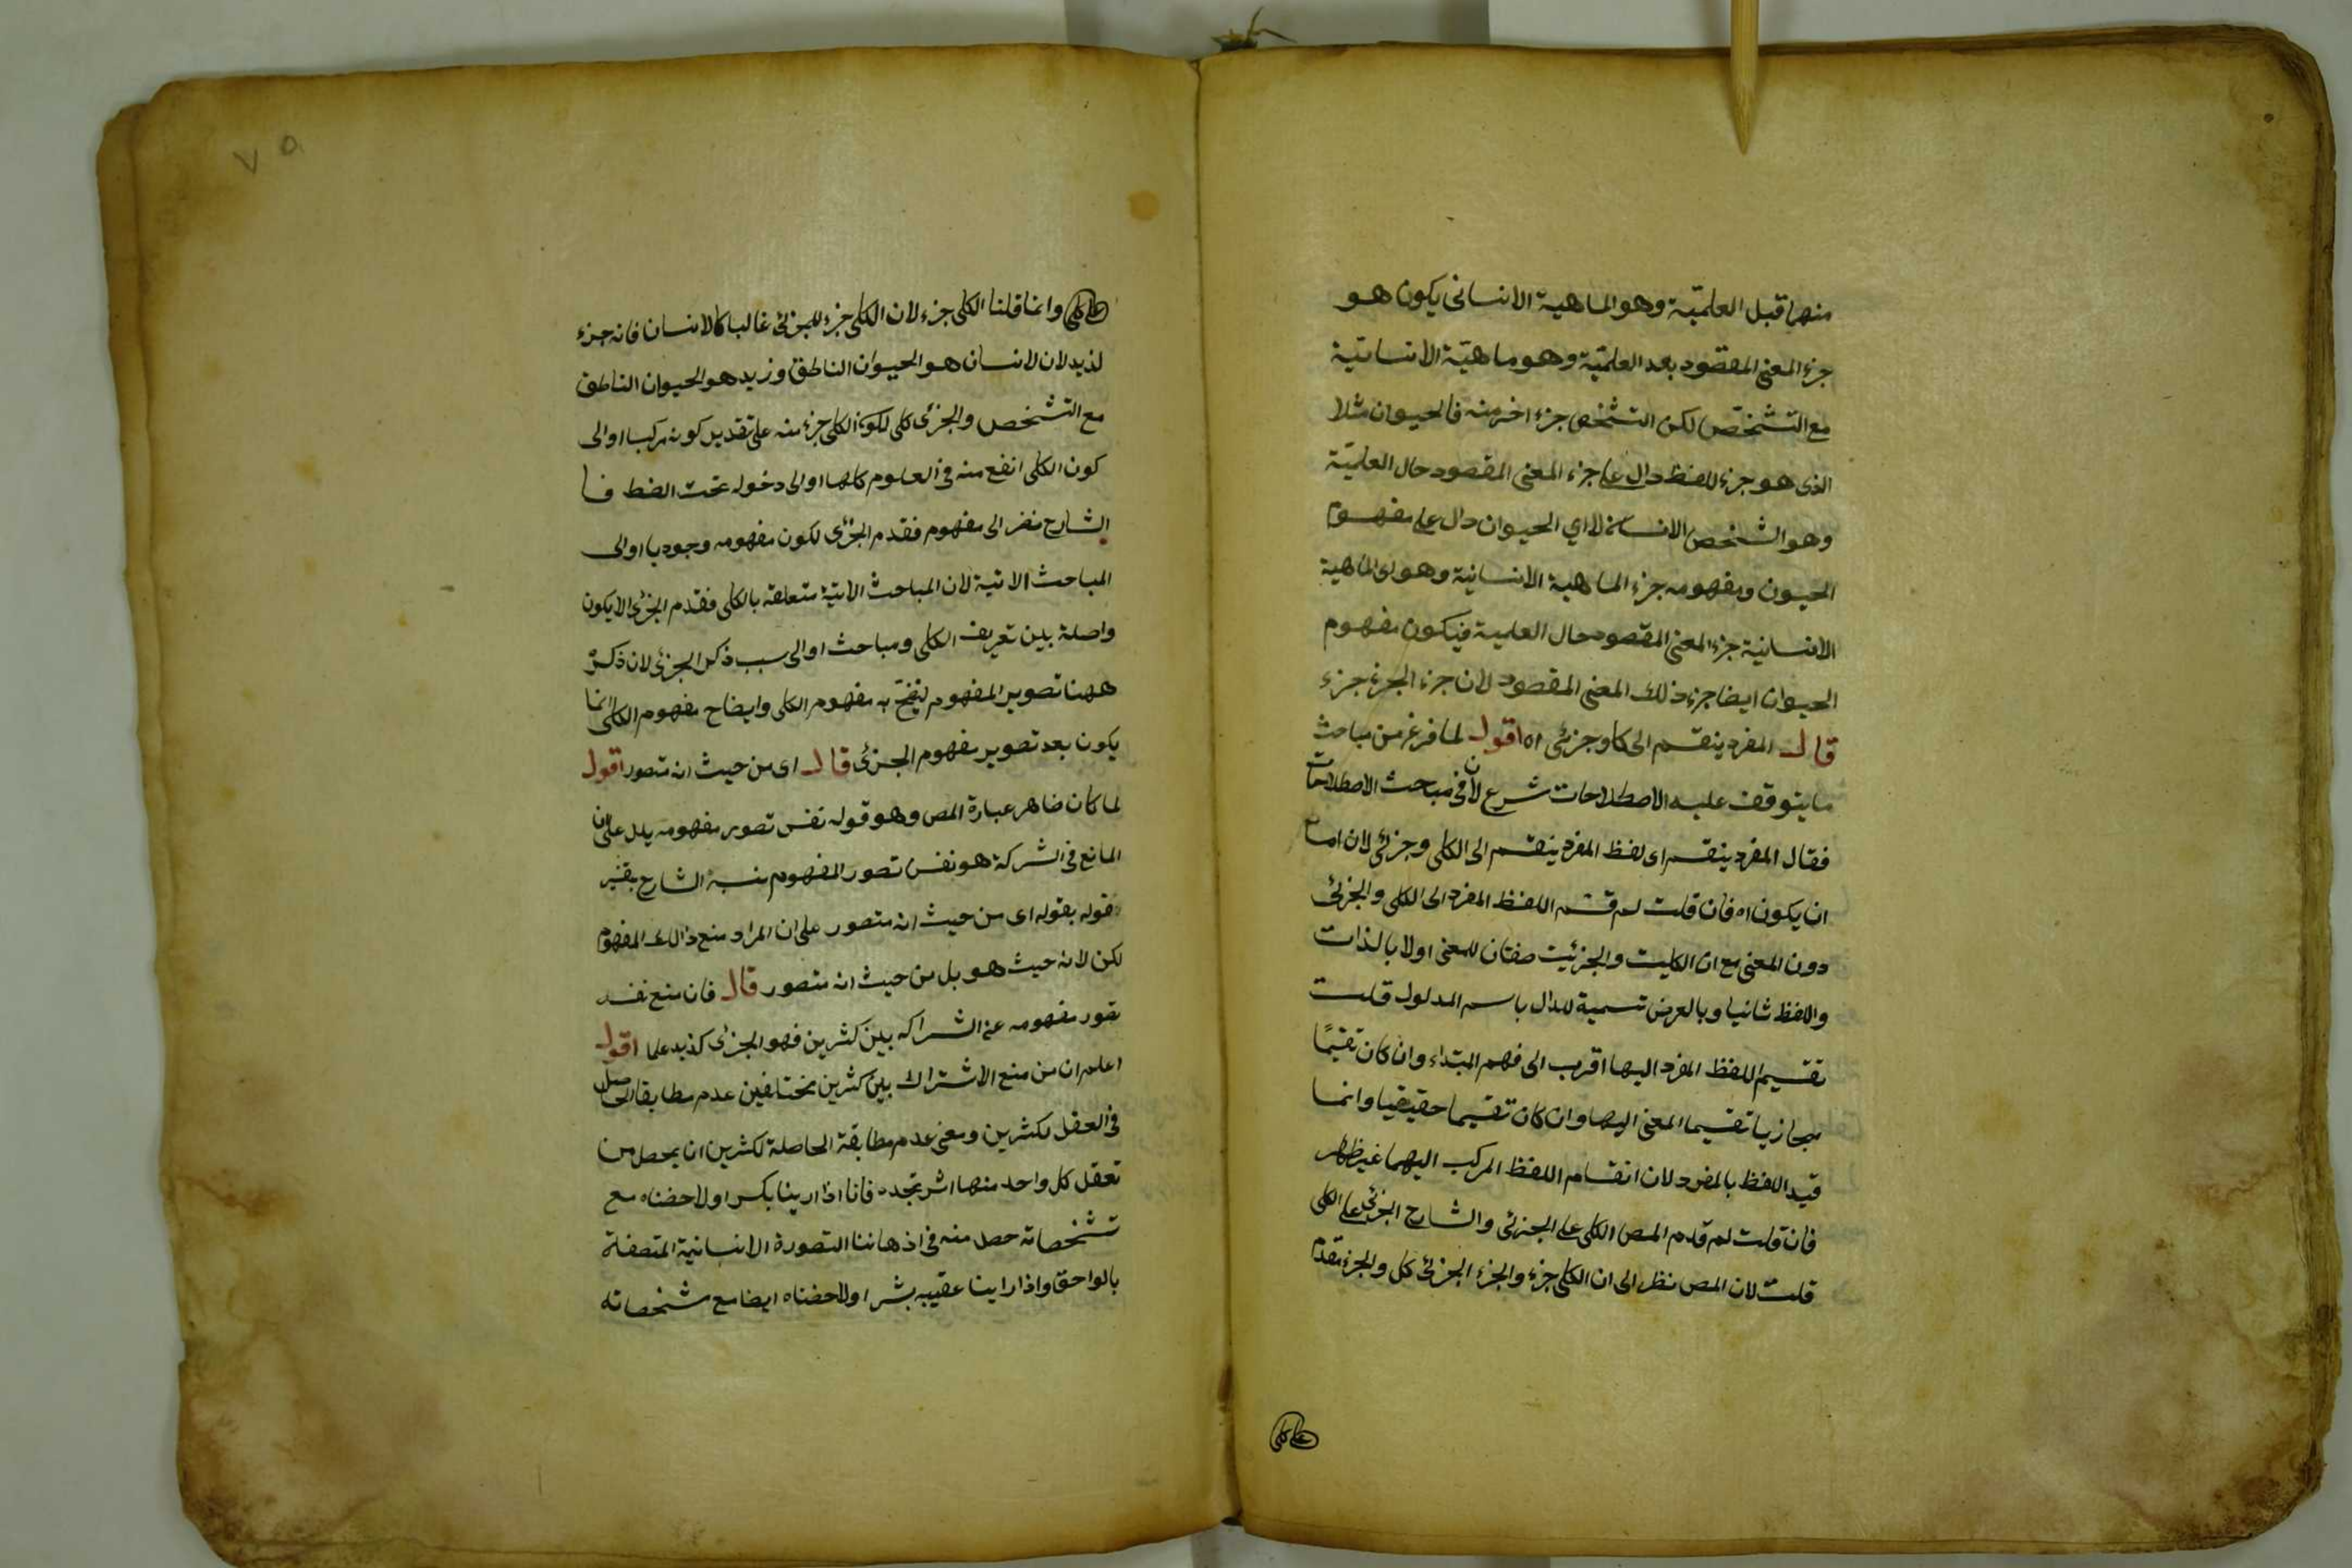 منهما قبل العلميّة وهو الماهية الانسانى يكون هو
جزء المعنى المقصود بعد العلميّة وهو ماهيّة الانسانيّة
مع التشخّص لكن التشخص جزء اخر منه فالحيوان مثلا
الذى هو جزء للفظ دال على جزء المعنى المقصود حال العلميّة
وهو الشخص الانسانى لا اي الحيوان دال على مفهوم
الحيون ومفهومه جزء الماهية الانسانية وهو اى الماهية
الانسانية جزء المعنى المقصود حال العلمية فيكون مفهوم
الحيوان ايضا جزء ذلك المعنى المقصود لان جزء الجزء جزء
قال المفرد ينقسم الى كلى وجزئى اه اقول لما فرغ من مباحث
ما يتوقف عليه الاصطلاحات شرع الان فى مباحث الاصطلاحات
فقال المفرد ينقسم اى لفظ المفرد ينقسم الى الكلى وجزئى لان اما
ان يكون اه فان قلت لم قسم اللفظ المفرد الى الكلى والجزئى
دون المعنى مع ان الكليت والجزئيت صفتان للمعنى اولا بالذات
واللفظ ثانيا وبالعرض تسمية للدال باسم المدلول قلت
تقسيم اللفظ المفرد اليها اقرب الى فهم المبتداء وان كان تقسيمًا
مجازيا تقسيما المعنى اليها وان كان تقسيما حقيقيا وانما
قيد اللفظ بالمفرد لان انقسام اللفظ المركب اليهما غير ظاهر
فان قلت لم قدم المص الكلى على الجزئى والشارح الجزئى على الكلى
قلت لان المص نظر الى ان الكلى جزء والجزء الجزئى كل والجزء مقدم
على كلى
على كلى وانما قلنا الكلى جزء لان الكلى جزء للجزئى غالبا كالانسان فانه جزء
لذيد لان لانسان هو الحيوان الناطق وزيد هو الحيوان الناطق
مع التشخص والجزئى كلى لكون الكلى جزء منه على تقدير كونه مركبا اوالى
كون الكلى انفع منه فى العلوم كلها اوالى دخوله تحت الضط فا
الشارح نضر الى مفهوم فقدم الجزئى لكون مفهومه وجوديا اوالى
المباحث الاتية لان المباحث الاتية متعلقه بالكلى فقدم الجزئى لالا يكون
واصلة بين تعريف الكلى ومباحث اوالى سبب ذكر الجزئى لان ذكره
ههنا تصوير المفهوم ليتضح به مفهوم الكلى وايضاح مفهوم الكلى انما
يكون بعد تصوير مفهوم الجزئى قال اى من حيث انه متصور اقول
لما كان ضاهر عبارة المص وهو قوله نفس تصور مفهومه يدل على ان
المانع فى الشركة هو نفس تصور المفهوم نبه الشارح بقيد
قوله بقوله اى من حيث انه متصور على ان المراد منع ذالك المفهوم
لكن لا نه حيث هو بل من حيث انه متصور قال فان منع نفس
تقور مفهومه عن الشراكه بين كثرين فهو الجزئى كذيد علما اقول
اعلم ان من منع الاشتراك بين كثرين مختلفين عدم مطابقا الحاصل
فى العقل لكثرين ومعنى عدم مطابقة الحاصلة لكثرين ان يحصل من
تعقل كل واحد منها اثر تجدد فانا اذا رينا بكر اولاحضناه مع
تشخصاته حصل منه فى اذهاننا التصورة الانسانية المتصفة
بالواحق واذا راينا عقيبه بشر اولاحضناه ايضا مع شخصاته